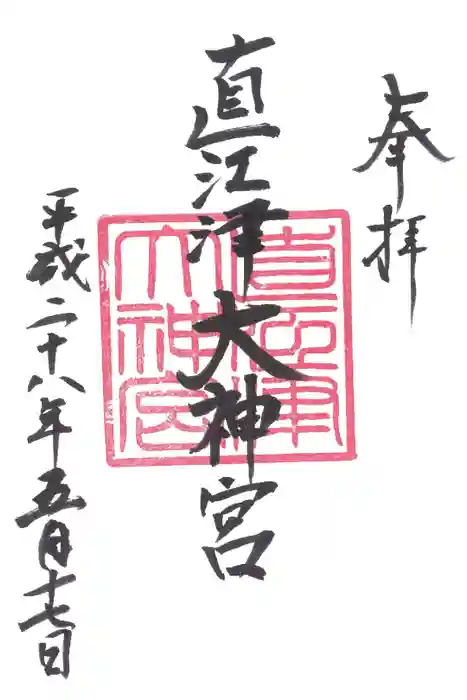 奉拝
直江津大神宮
直江津大神宮
平成二十八年五月十七日